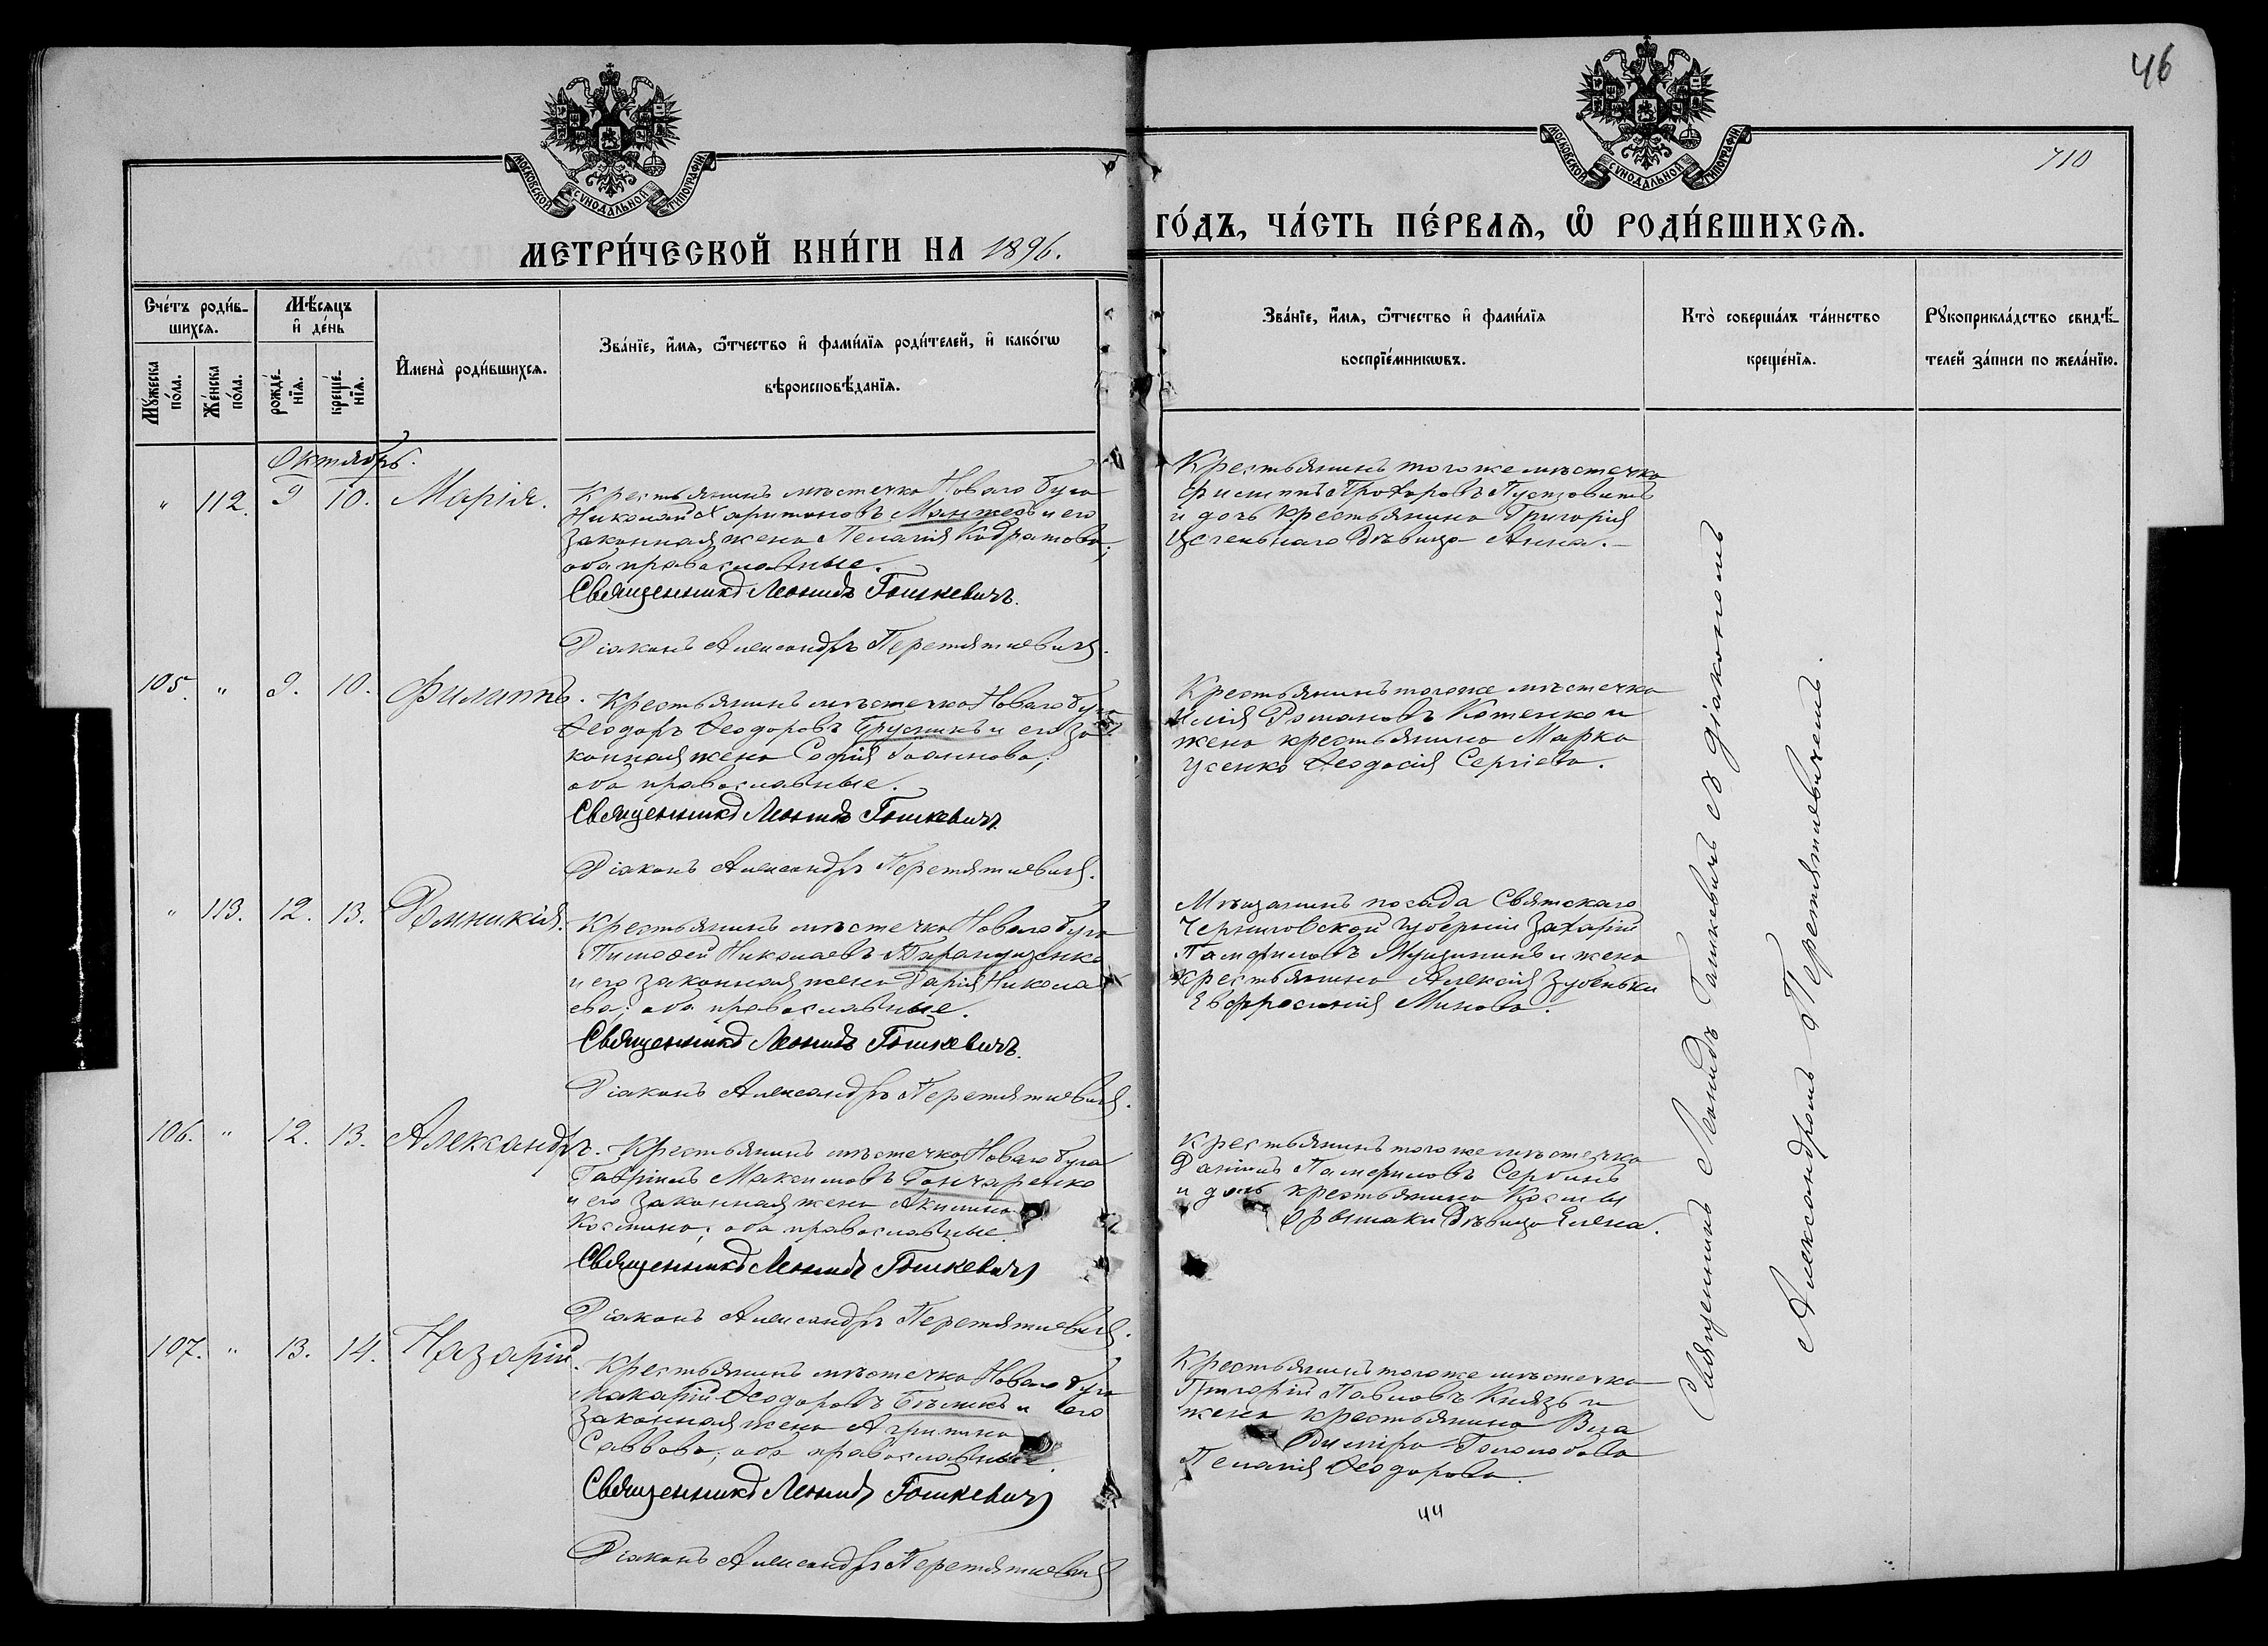 46
710
МОСКОВСКОЙ СѴНОДАЛЬНОЙ ТИПОГРАФІИ
МОСКОВСКОЙ СѴНОДАЛЬНОЙ ТИПОГРАФІИ
МЕТРИ́ЧЕСКОЙ КНИ́ГИ НА 1896.
ГО́ДЪ, ЧА́СТЬ ПЕ́РВАѦ, Ѡ҆ РОДИ́ВШИХСѦ.
Сче́тъ роди́в-
шихся.
Мѣ́сяцъ
и҆ де́нь
Мꙋ́жеска по́ла.
Же́нска по́ла.
рожде́-
нїя.
креще́-
нїя.
И҆мена̀ роди́вшихся.
Зва́нїе, и҆́мя, ѻ҆́тчество и҆ фами́лїя роди́телей, и҆ како́гѡ
вѣроисповѣ́данїя.
Зва́нїе, и҆́мя, ѻ҆́тчество и҆ фами́лїя
воспрїе́мникѡвъ.
Кто̀ соверша́лъ та́инство
креще́нїя.
Рꙋкоприкла́дство свидѣ́-
телей за́писи по жела́нїю.
Октябрь.
" 112. 9 10. Марія.
Крестьянинъ мѣстечка Новаго Буга
Николай Харитоновъ Манжевъ и его
законная жена Пелагія Кодратова;
оба православные.
Священникъ Леонидъ Гошкевичъ.
Діаконъ Александръ Перетятковичъ.
Крестьянинъ того же мѣстечка
Филиппъ Прохоровъ
и дочь крестьянина Григорія
дѣвица Анна.
105. " 9. 10. Филиппъ.
Крестьянинъ мѣстечка Новаго Буга
Ѳеодоръ Ѳеодоровъ Брусникъ и его за
конная жена Софія Іоаннова;
оба православные.
Священникъ Леонидъ Гошкевичъ.
Діаконъ Александръ Перетятковичъ.
Крестьянинъ того же мѣстечка
Илія Романовъ Котенко и
жена крестьянина Марка
Усенко Ѳеодосія Сергіева.
" 113. 12. 13. Домникія.
Крестьянинъ мѣстечка Новаго Буга
Тимоѳей Николаевъ Таранущенко
и его законная жена Дарія Никола
ева; оба православные.
Священникъ Леонидъ Гошкевичъ.
Діаконъ Александръ Перетятковичъ.
Мѣщанинъ посада Святскаго
Черниговской губерніи Захарій
Памфиловъ и жена
крестьянина Алексія Зубенька
Евфросинія Минова.
106. " 12. 13. Александръ.
Крестьянинъ мѣстечка Новаго Буга
Гавріилъ Максимовъ Гончаренко
и его законная жена Акилина
Космина; оба православные.
Священникъ Леонидъ Гошкевичъ
Діаконъ Александръ Перетятковичъ.
Крестьянинъ того же мѣстечка
Даніилъ Памфиловъ Сербинъ
и дочь крестьянина Космы
дѣвица Елена.
107. " 13. 14. Назарій.
Крестьянинъ мѣстечка Новаго Буга
Макарій Ѳеодоровъ Бѣликъ и его
законная жена Агрипина
Саввова; оба православные.
Священникъ Леонидъ Гошкевичъ
Діаконъ Александръ Перетятковичъ
Крестьянинъ того же мѣстечка
Григорій Павловъ Князь и
жена крестьянина Вла
диміра Головова
Пелагія Ѳеодорова.
44
Священникъ Леонидъ Гошкевичъ съ діакономъ
Александромъ Перетятковичемъ.